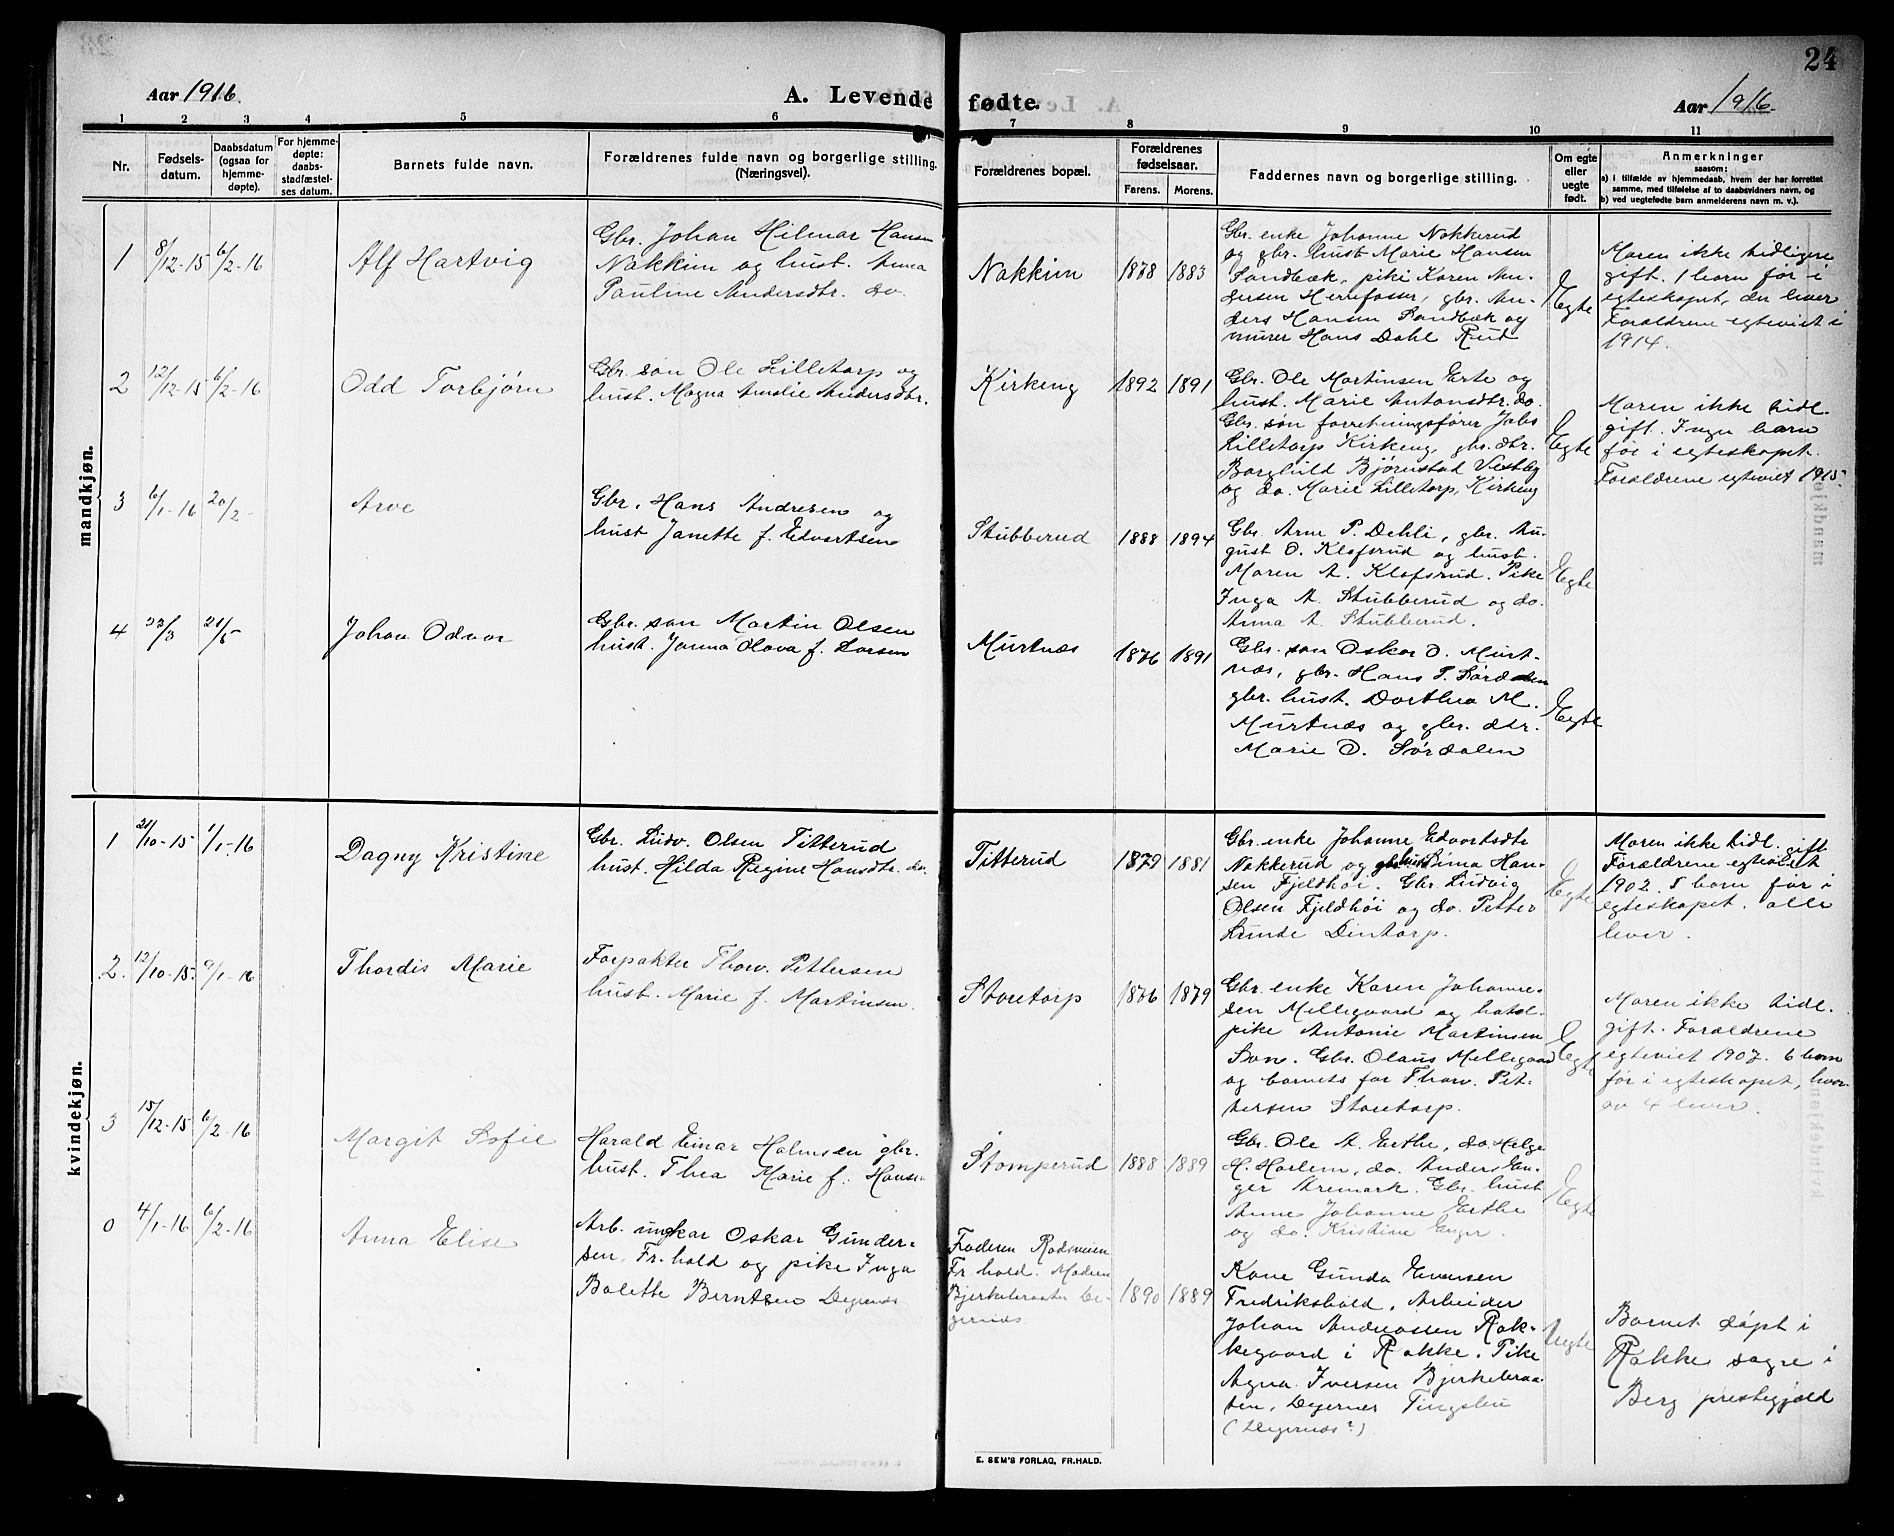 24
Aar 1916.
A. Levende fødte.
Aar 1916.
1 2 3 4 5 6 7 8 9 10 11
Nr.
Fødsels-
datum.
Daabsdatum
(ogsaa for
hjemme-
døpte).
For hjemme-
døpte:
daabs-
stadfæstel-
ses datum.
Barnets fulde navn.
Forældrenes fulde navn og borgerlige stilling.
(Næringsvei).
Forældrenes bopæl.
Forældrenes
fødselsaar.
Farens.
Morens.
Faddernes navn og borgerlige stilling.
Om egte
eller
uegte
født.
Anmerkninger
saasom:
a) i tilfælde av hjemmedaab, hvem der har forrettet
samme, med tilføielse af to daabsvidners navn, og
b) ved uegtefødte barn anmelderens navn m. v.).
mandkjøn.
1
8/12-15
6/2-16
Alf Hartvig
Gbr. Johan Hilmar Hansen
Nakkim og hust. Anna
Pauline Andersdtr. do.
Nakkim
1878
1883
Gbr. enke Johanne Nakkerud
og gbr. hust Marie Hansen
Sandbæk, pike Karen An-
dersen Herrefosser, gbr. An-
ders Hansen Sandbæk og
murer Hans Dahl Rud
Egte
Moren ikke tidligere
gift. 1 barn før i
egteskapet, der lever
Forældrene egteviet i
1914.
2
12/12-15
6/2-16
Odd Torbjørn
Gbr. søn Ole Lilletorp og
hust. Magna Amalie Andersdtr.
Kirkeng
1892
1891
Gbr. Ole Martinsen Erte og
hust. Marie Antonsdtr. do.
Gbr. søn forretningsfører Jabs
Lilletorp Kirkeng, gbr. dtr.
Borghild Bjørnstad Vestby
og do. Marie Lilletorp, Kirkeng
Egte
Moren ikke tidl.
gift. Ingen barn
før i egteskapet.
Forældrene egteviet 1915.
3
6/1-16
20/2-
Arve
Gbr. Hans Andresen og
hust Janette f. Edvartsen
Stubberud
1888
1894
Gbr. Arne P. Dehli, gbr. Au-
gust O. Klofsrud og hust.
Maren A. Klofsrud. Pike
Inga A. Stubberud og do.
Anna A. Stubberud.
Egte
4
22/3
21/5
Johan Odvar
Gbr. søn Martin Olsen
hust. Janna Olava f. Larsen
Murtnæs
1876
1891
Gbr. søn Oskar O. Murt-
næs, gbr. Hans P. Sørdalen
gbr. hust. Dorthea M.
Murtnæs og gbr. dtr.
Marie O. Sørdalen
Egte
kvindekjøn.
1
21/10-15
1/1-16
Dagny Kristine
Gbr. Ludv. Olsen Titterud
hust. Hilda Regine Hansdtr. do.
Titterud
1879
1881
Gbr. enke Johanne Edvartsdtr
Nakkerud og gbr hust Bina Han-
sen Fjeldhøi. Gbr. Ludvig
Olsen Fjeldhøi og do. Petter
Lunde Dintorp.
Egte
Moren ikke tidl. gift
Forældrene egteviet
1902. 5 barn før i
egteskapet. alle
lever.
2.
12/10-15.
9/1-16
Thordis Marie
Forpakter Thorv. Pettersen
hust. Marie f. Martinsen.
Storetorp
1876
1879
Gbr. enke Karen Johanne-
sen Mellegaard og hotel-
pike Antonie Martinsen
Bøn. Gbr. Olaus Mellegaard
og barnets far Thorv. Pet-
tersen Storetorp.
Egte
Moren ikke tidl.
gift. Forældrene
egteviet 1907. 6 barn
før i egteskapet, hvor-
av 4 lever.
3
15/12-15
6/2-16
Margit Sofie
Harald Einar Halmsen gbr.
hust. Thea Marie f. Hansen
Stomperud
1888
1889
Gbr. Ole A. Erthe, do. Helge
H. Harlem, do. Anders En-
ger Aremark. Gbr. hust
Anne Johanne Erthe
og do. Kristine Enger.
Egte
0
4/1-16
6/2-16
Anna Elise
Arb. ungkar Oskar Gunder-
sen, Fr.hald og pike Inga
Bolette Berntsen Degernes
Faderen Rødsveien
Fr.hald. Moderen
Bjerkebraaten De-
gernæs.
1890
1889
Kone Gunda Evensen
Fredrikshald. Arbeider
Johan Andreassen Rok-
kegaard i Rokke. Pike
Agna Iversen Bjerkebraa-
ten, Degernes Tingsbu
(Degernæs?)
Uegte
Barnet døpt i
Rokke sogn i
Berg prestegjæld
E. SEM'S FORLAG, FR.HALD.